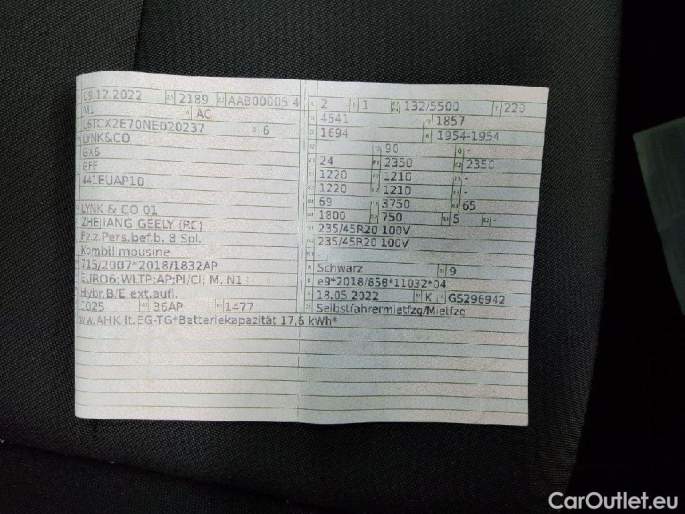 19.12.2022 2189 AAB00005 4
M1 AC
L6TCX2E70NE020237 6
LYNK&CO
GX6
EFF
441EUAP10
LYNK & CO 01
ZHEJIANG GEELY (RC)
Fz.z.Pers.bef.b. 8 Spl.
Kombilimousine
715/2007*2018/1832AP
EURO6;WLTP;AP;PI/CI; M, N1
Hybr.B/E ext.aufl.
0025 36AP 1477
2 1 132/5500 220
4541 1857
1694 1954-1954
90 -
24 2350 2350
1220 1210 -
1220 1210 -
69 3750 65
1800 750 5 -
235/45R20 100V
235/45R20 100V
Schwarz 9
e9*2018/858*11032*04
18.05.2022 K GS296942
Selbstfahrermietfzg/Mietfzg
ww.AHK lt.EG-TG*Batteriekapazität 17,6 kWh*
CarOutlet.eu